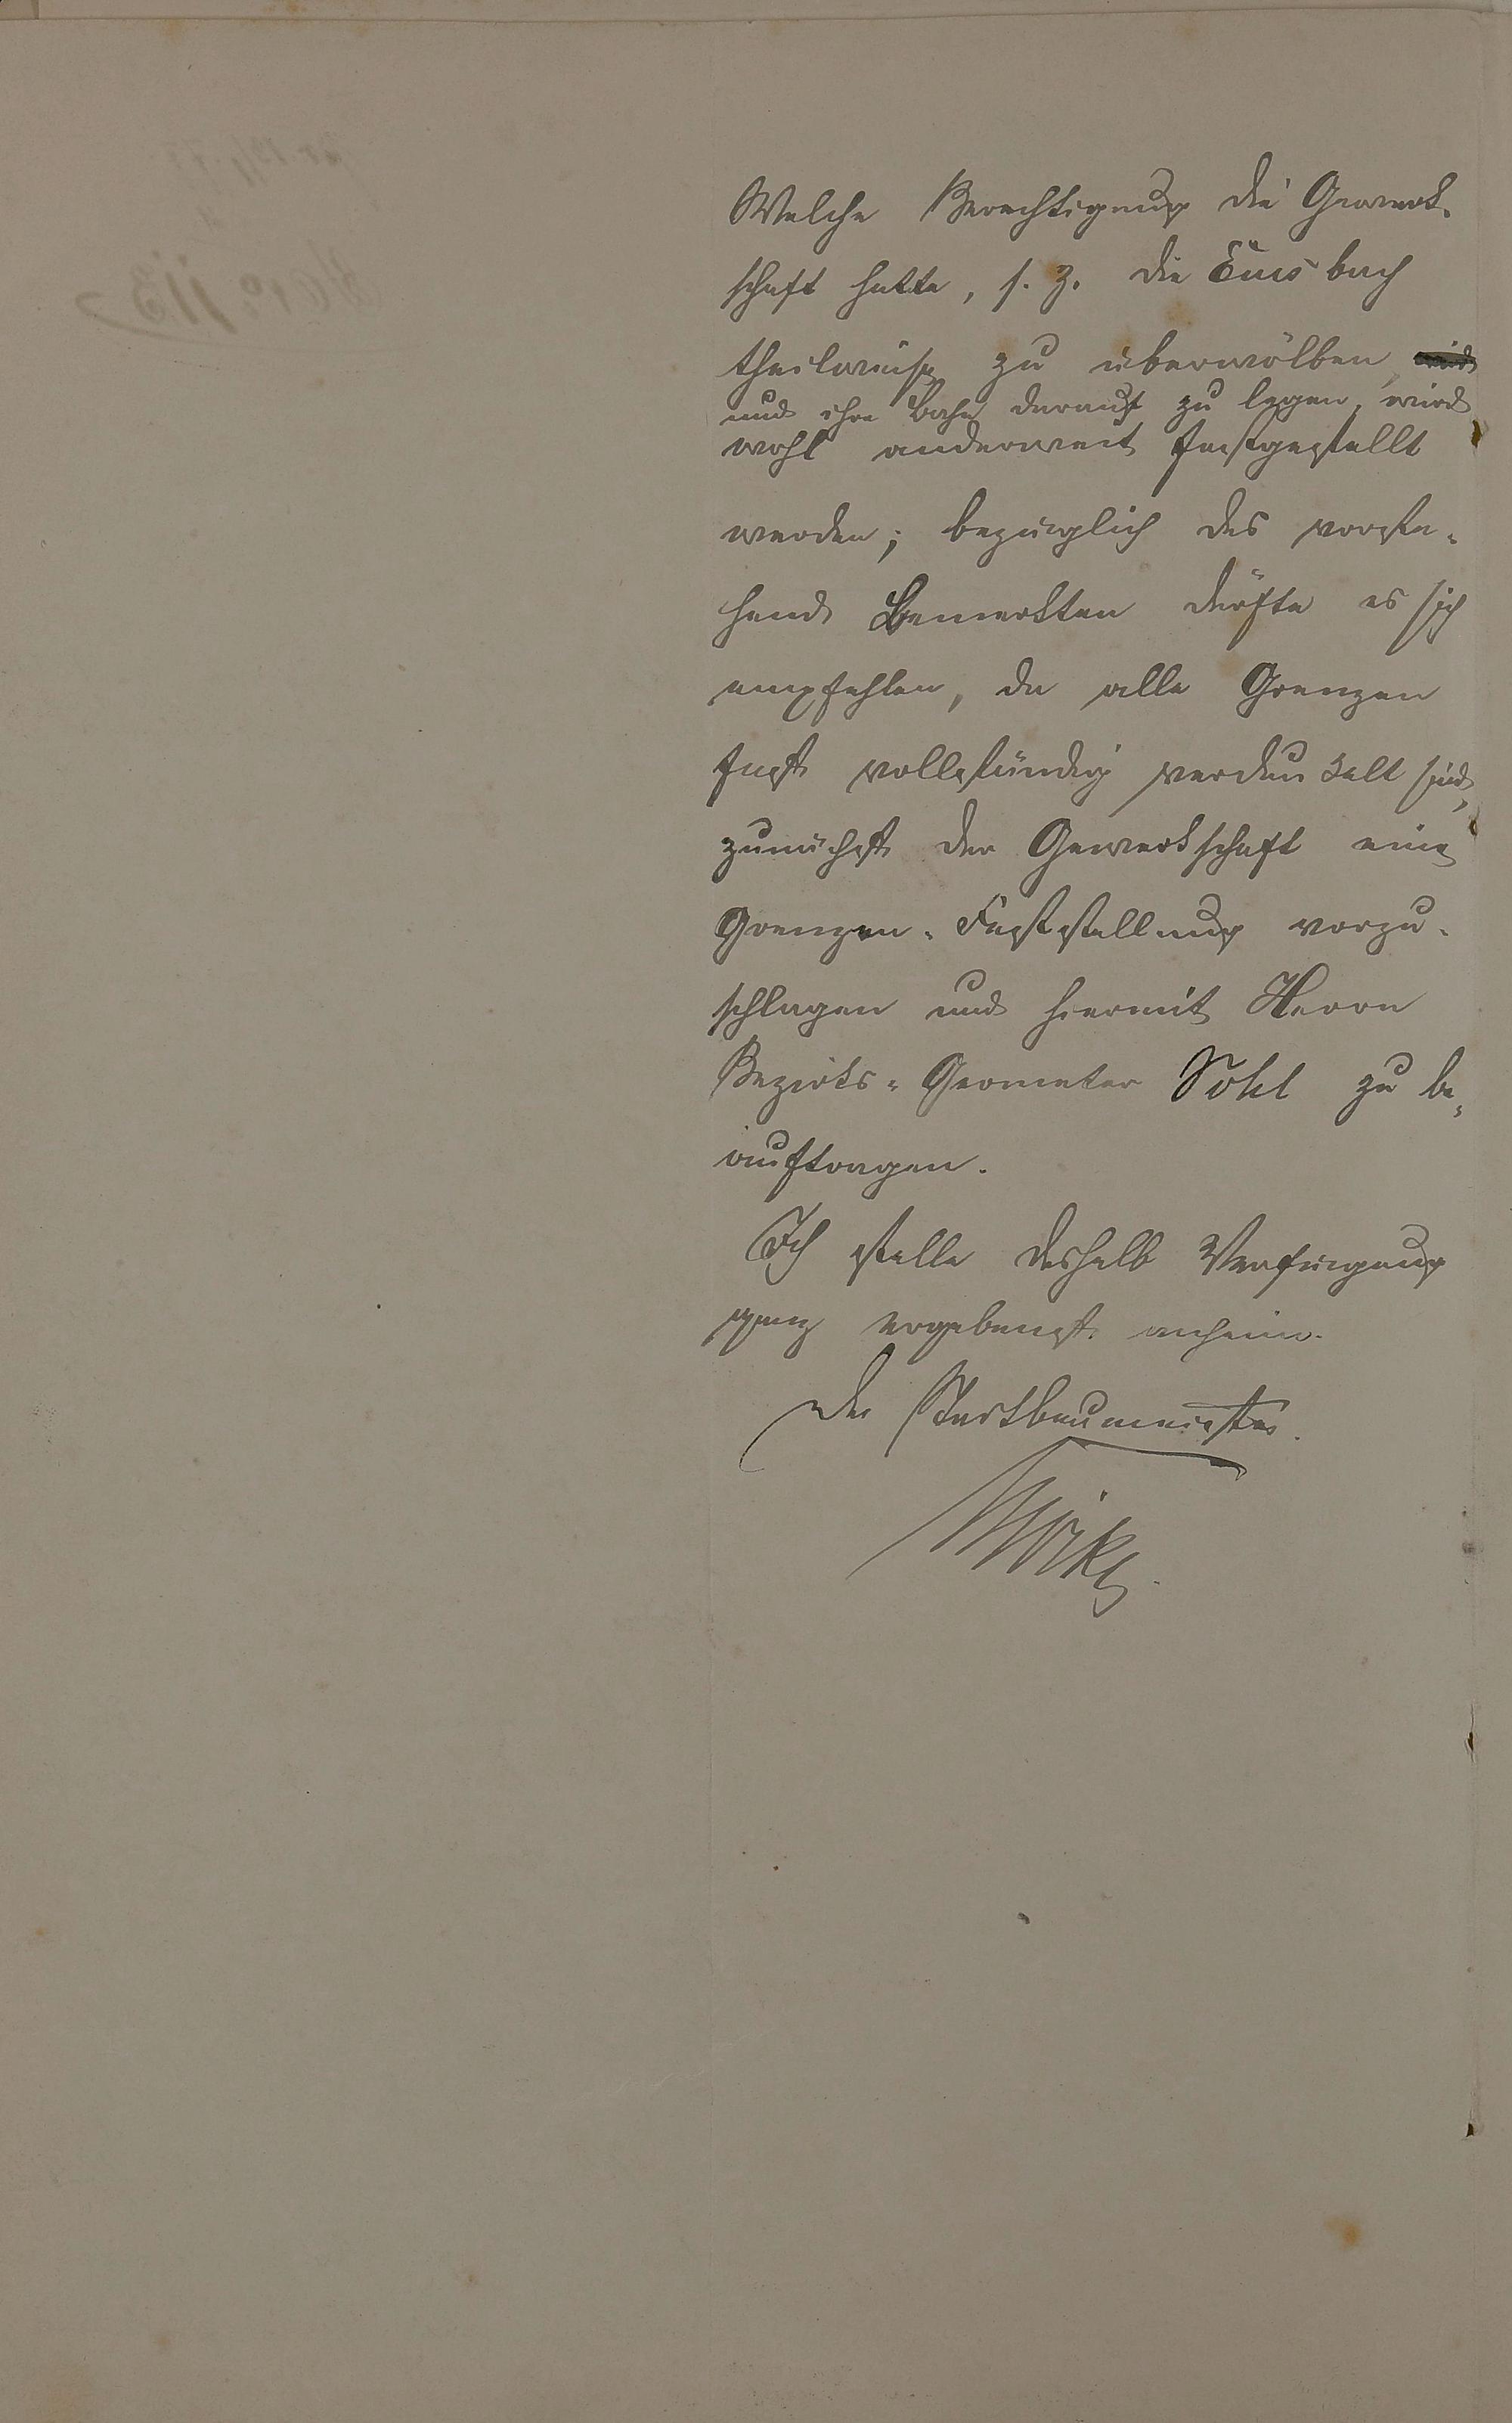 Welche Berechtigung die Gewerk-
schaft hatte, s. Z. die Emsbach
theilweise zu überwölben
und ihre Bahn darauf zu legen, wird
wohl anderweit festgestellt
werden; bezüglich des vorste-
hend Bemerkten dürfte es sich
empfehlen, da alle Grenzen
fast vollständig verdunkelt sind,
zunächst der Gewerkschaft eine
Grenzen-Feststellung vorzu-
schlagen und hiermit Herrn
Bezirks-Geometer Sohl zu be-
auftragen.
Ich stelle deshalb Verfügung
ganz ergebenst anheim.
Der Stadtbaumeister.